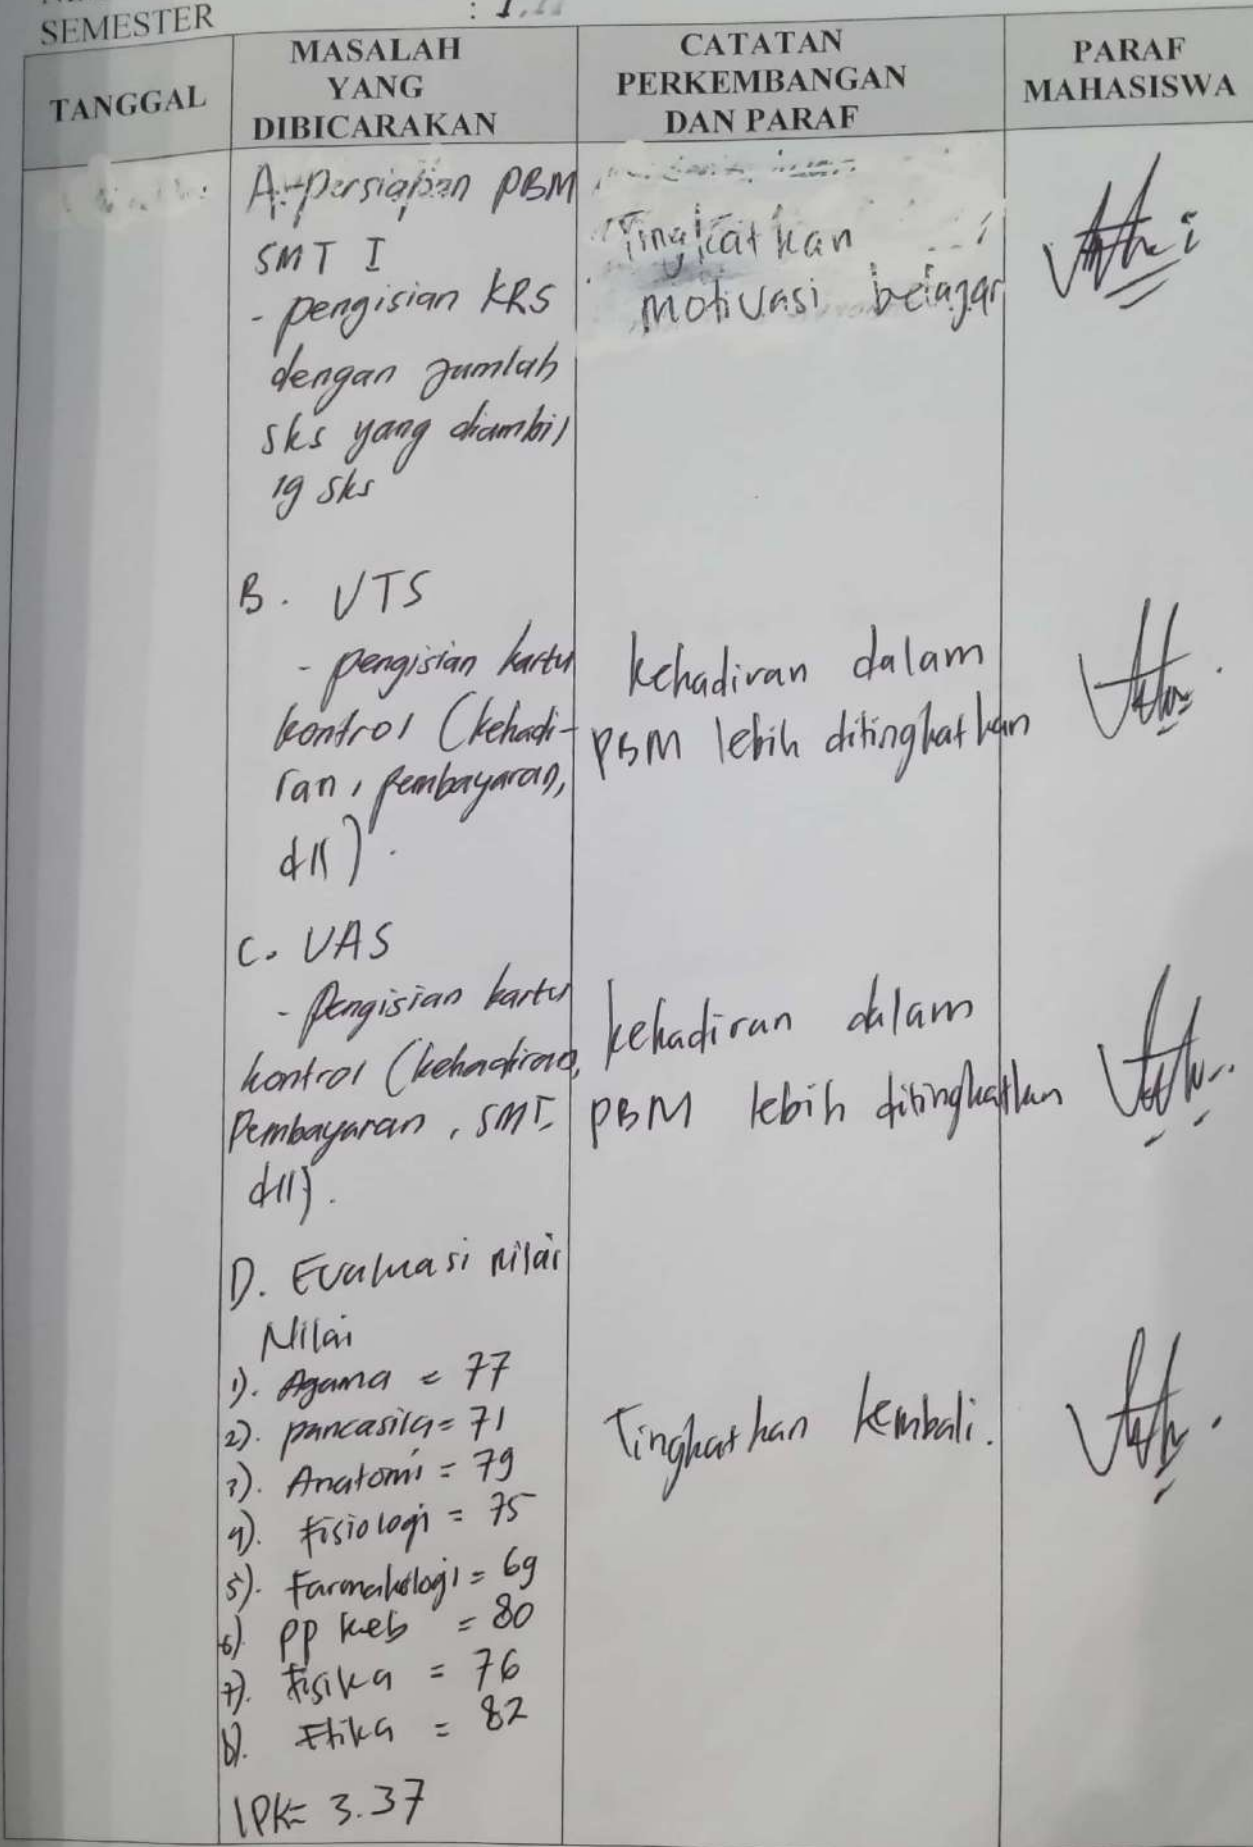 SEMESTER
TANGGAL
MASALAH
YANG
DIBICARAKAN
CATATAN
PERKEMBANGAN
DAN PARAF
PARAF
MAHASISWA
A. persiapan PBM
SMT I
- pengisian KRS
dengan jumlah
sks yang diambil
19 sks
Tingkatkan
motivasi belajar
B. UTS
- pengisian kartu
kontrol (kehadi-
ran, pembayaran,
dll).
kehadiran dalam
PBM lebih ditingkatkan
C. UAS
- Pengisian kartu
kontrol (kehadiran,
Pembayaran, SMT,
dll).
kehadiran dalam
PBM lebih ditingkatkan
D. Evaluasi nilai
Nilai
1). Agama = 77
2). pancasila = 71
3). Anatomi = 79
4). Fisiologi = 75
5). Farmakologi = 69
6) PP Keb = 80
7). Fisika = 76
8). Etika = 82
IPK = 3.37
Tingkatkan kembali.